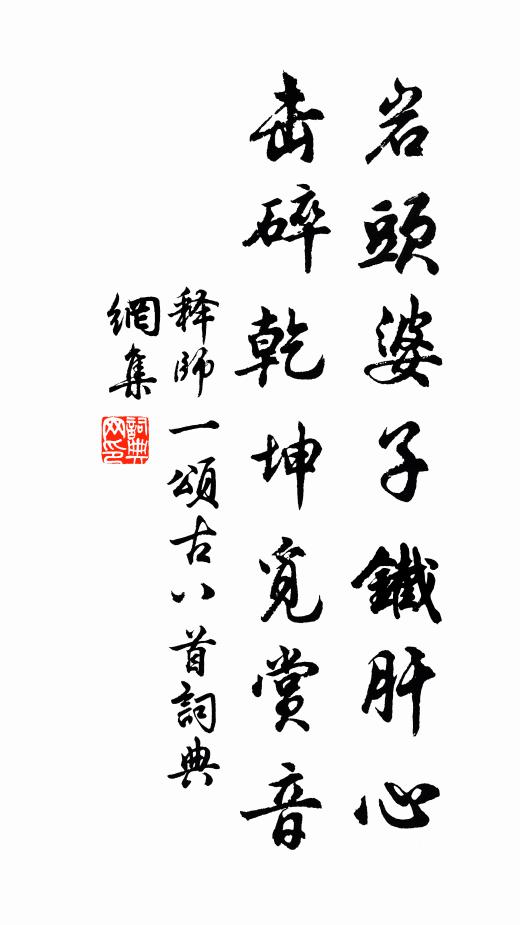 岩頭婆子鐵肝心
击碎乾坤覓賞音
释師一頌古八首詞典
網集
詞典網印